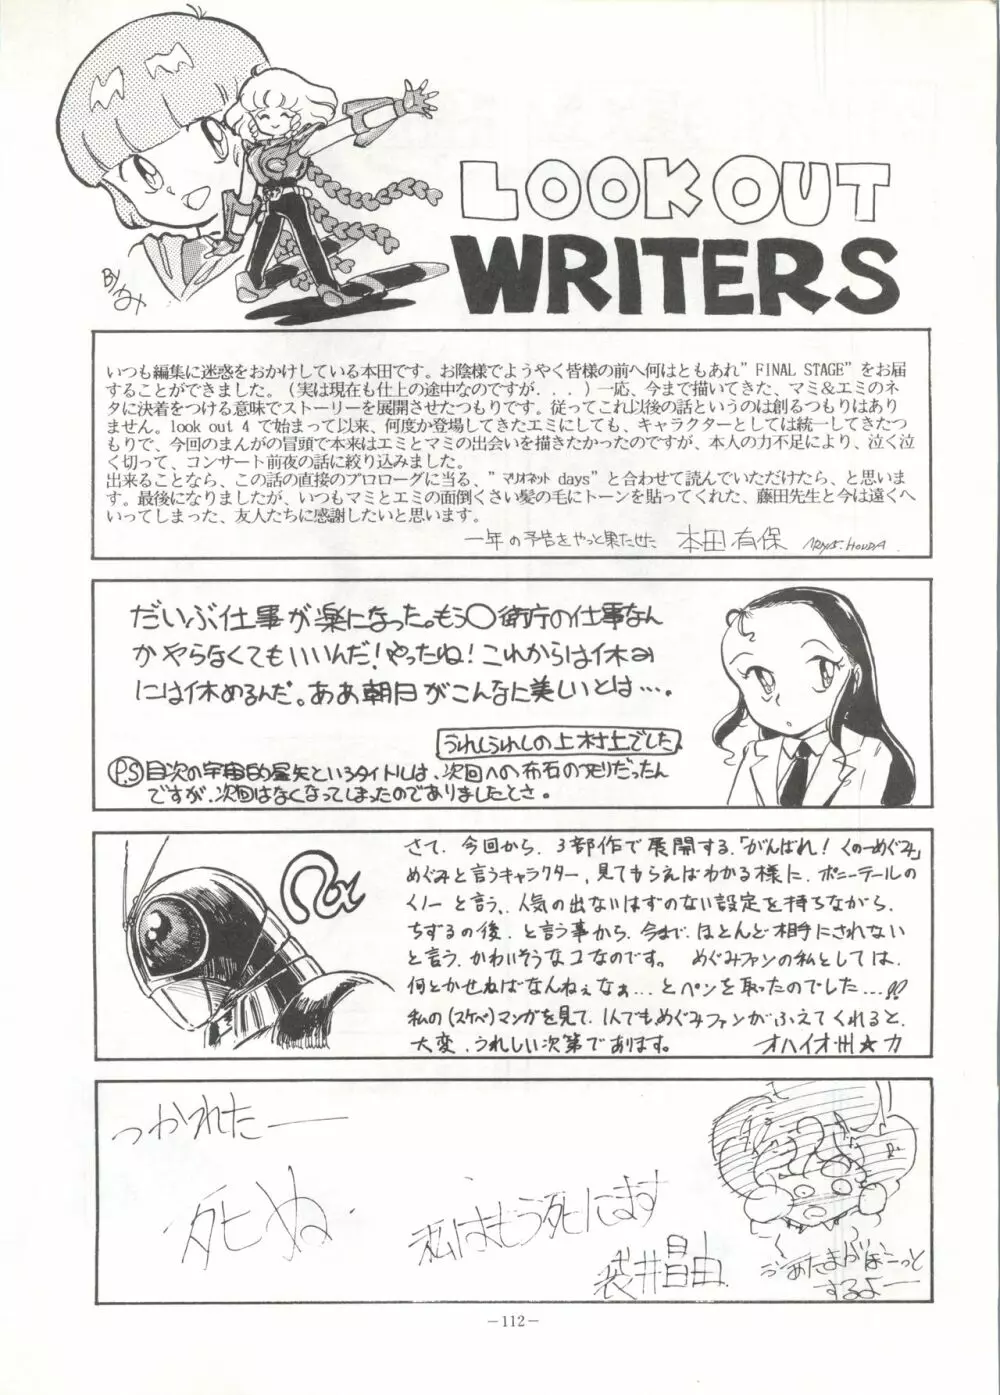 LOOK OUT
WRITERS
By
いつも編集に迷惑をおかけしている本田です。お陰様でようやく皆様の前へ何はともあれ”FINAL STAGE”をお届
することができました。(実は現在も仕上の途中なのですが...)一応、今まで描いてきた、マミ&エミのネ
タに決着をつける意味でストーリーを展開させたつもりです。従ってこれ以後の話というのは創るつもりはあり
ません。look out 4 で始まって以来、何度か登場してきたエミにしても、キャラクターとしては統一してきたつ
もりで、今回のまんがの冒頭で本来はエミとマミの出会いを描きたかったのですが、本人の力不足により、泣く泣
く切って、コンサート前夜の話に絞り込みました。
出来ることなら、この話の直接のプロローグに当る、”マリオネット days”と合わせて読んでいただけたら、と思いま
す。最後になりましたが、いつもマミとエミの面倒くさい髪の毛にトーンを貼ってくれた、藤田先生と今は遠くへ
いってしまった、友人たちに感謝したいと思います。
一年の予告をやっと果たせた 本田有保
だいぶ仕事が楽になった。もう〇衛庁の仕事なん
かやらなくてもいいんだ!やったね!これからは休み
には休めるんだ。ああ朝日がこんなに美しいとは…。
うれしうれしの上村上でした
P.S 目次の宇宙的星矢というタイトルは、次回への布石のつもりだったん
ですが、次回はなくなってしまったのでありましたとさ。
さて、今回から、3部作で展開する、「がんばれ!くの一めぐみ」
めぐみと言うキャラクター、見てもらえばわかる様に、ポニーテールの
くノ一と言う、人気の出ないはずのない設定を持ちながら、
ちずるの後、と言う事から、今まで、ほとんど相手にされない
と言う、かわいそうなコなのです。 めぐみファンの私としては、
何とかせねばなんねぇなぁ…とペンを取ったのでした…!!
私の(スケベ)マンガを見て、1人でも、めぐみファンがふえてくれると、
大変、うれしい次第であります。 オハイオ州★力
つかれたー
死ぬ
私はもう死にます
袋井昌由
あたまがぼーっと
するよー
－112－